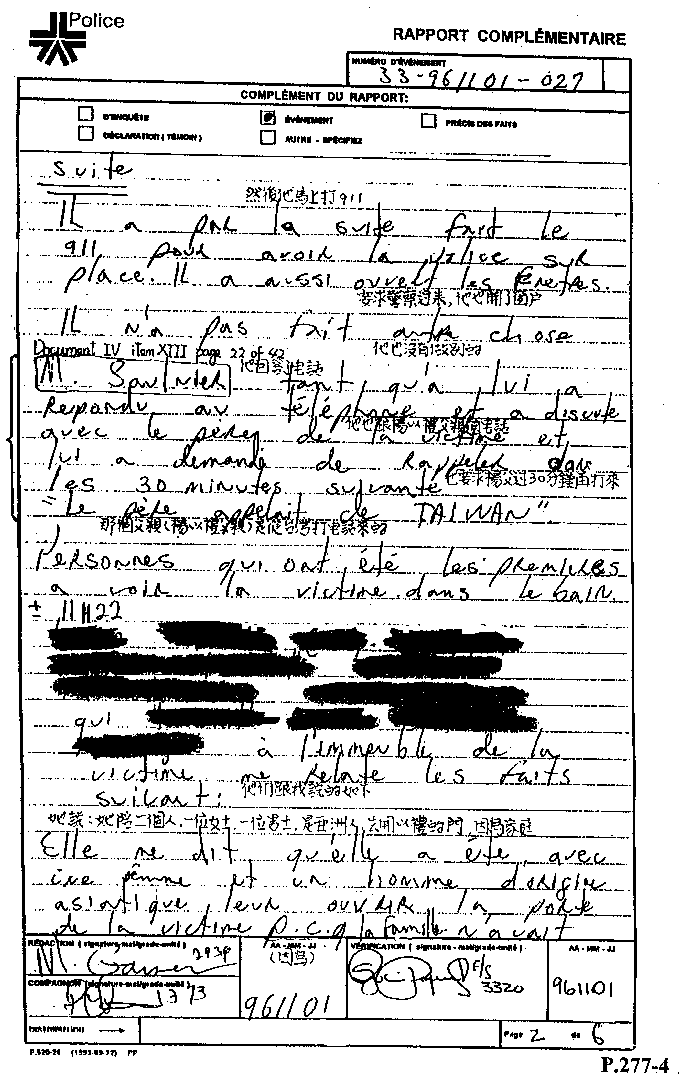 Police
RAPPORT COMPLÉMENTAIRE
NUMÉRO D'ÉVÉNEMENT
33-961101-027
COMPLÉMENT DU RAPPORT:
D'ENQUÊTE
ÉVÉNEMENT
PRÉCIS DES FAITS
DÉCLARATION (TÉMOIN)
AUTRE - SPÉCIFIEZ
suite
然後他馬上打911
Il a par la suite fait le
911 pour avoir la police sur
place. Il a aussi ouvert les fenêtres.
要求警察過來,他也開了窗戶
Il n'a pas fait autre chose
Document IV item XIII page 22 of 42
他也沒有做別的
他回答電話
M. Saulnier tant qu'à lui a
répondu au téléphone et a discuté
他也跟楊以禮父親講電話
avec le père de la victime et
qui a demandé de rappeler dans
les 30 minutes suivante
他要求楊父過30分鐘再打來
"Le père appelait de TAIWAN".
那個父親(楊以禮父親)是從台灣打電話來的
Personnes qui ont été les premières
a voir la victime dans le bain.
± 11H22
qui
à l'immeuble de la
victime me relate les faits
suivant:
他們跟我說的如下
她說:她陪二個人,一位女士,一位男士,是亞洲人,去開以禮的門,因為家庭
Elle me dit qu'elle a été avec
une femme et un homme d'origine
asiatique leur ouvrir la porte
de la victime p.c.q la famille n'avait
RÉDACTION (signature-matl/grade-unité)
2939
AA - MM - JJ
(因為)
VÉRIFICATION (signature - matl/grade-unité)
AA - MM - JJ
COMPAGNON (signature-matl/grade-unité)
961101
3320
961101
Page 2 de 6
P.277-4